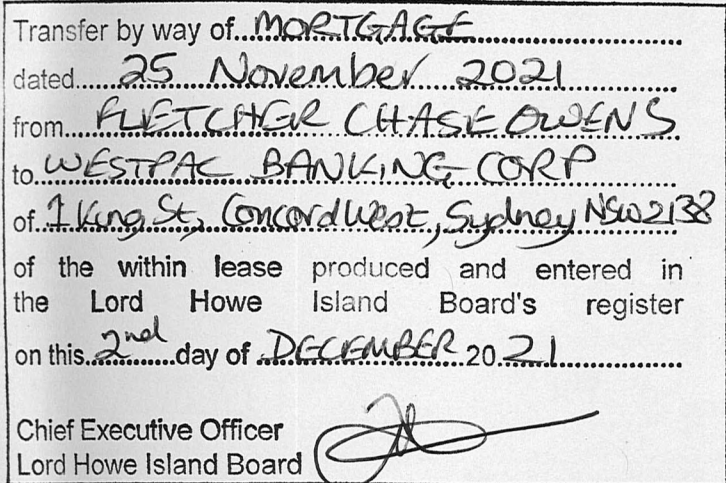 Transfer by way of MORTGAGE
dated 25 November 2021
from FLETCHER CHASE OWENS
to WESTPAC BANKING CORP
of 1 King St, Concord West, Sydney NSW 2138
of the within lease produced and entered in
the Lord Howe Island Board's register
on this 2nd day of DECEMBER 2021
Chief Executive Officer
Lord Howe Island Board